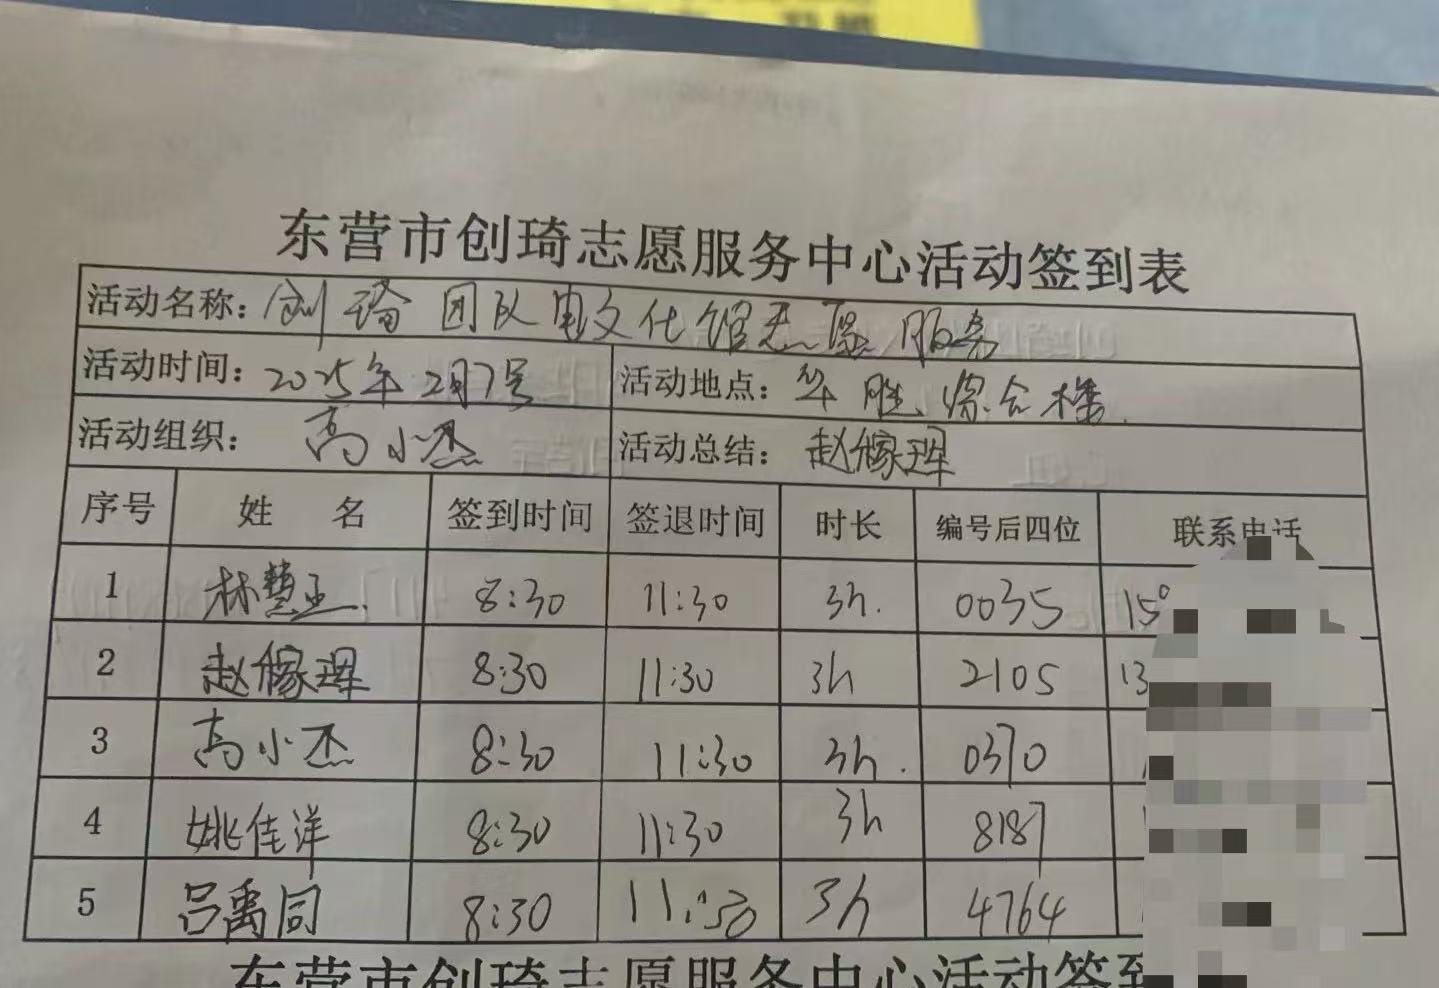 东营市创琦志愿服务中心活动签到表
活动名称：创琦团队电文化馆志愿服务
活动时间：2025年2月7号 活动地点：华胜综合楼.
活动组织：高小杰 活动总结：赵稼珲
序号 姓 名 签到时间 签退时间 时长 编号后四位 联系电话
1 林慧玉. 8:30 11:30 3h. 0035 15
2 赵稼珲 8:30 11:30 3h 2105 13
3 高小杰 8:30 11:30 3h. 0370
4 姚佳洋 8:30 11:30 3h 8187
5 吕禹同 8:30 11:30 3h 4764
东营市创琦志愿服务中心活动签到